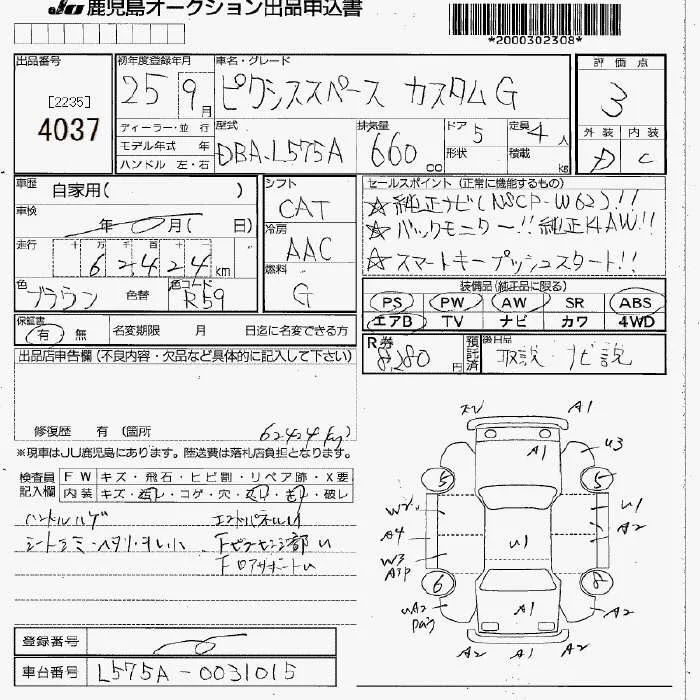 JU 鹿児島オークション出品申込書
*2000302308*
出品番号
[2235]
4037
初年度登録年月
25 9月
車名・グレード
ピクシススペース カスタムG
評価点
3
外装 内装
D C
ディーラー・並 行
モデル年式 年
ハンドル 左・右
型式
DBA-L575A
排気量
660 cc
ドア 5
形状
定員 4人
積載 kg
車歴 自家用( )
車検
年 月( 日)
走行 十 万 千 百 十
6 2 4 2 4 km
色 ブラウン 色替 色コード R59
シフト
CAT
冷房
AAC
燃料
G
セールスポイント (正常に機能するもの)
☆純正ナビ(NSCP-W62)!!
☆バックモニター!!純正14AW!!
☆スマートキープッシュスタート!!
装備品(純正品に限る)
PS PW AW SR ABS
エアB TV ナビ カワ 4WD
保証書
有 無 名変期限 月 日迄に名変できる方
R券 8,280円 預託済 後日品 取説・ナビ説
出品店申告欄 (不良内容・欠品など具体的に記入して下さい)
修復歴 有 (箇所
62424km
※現車はJU鹿児島にあります。陸送費は落札店負担となります。
検査員記入欄
FW キズ・飛石・ヒビ割・リペア跡・X要
内装 キズ・・コゲ・穴・・・破レ
ハンドルハゲ
エンドパネルU
シートシミ・ヘタリ・オレ小
Fピラーセンター部U
FロアサポートU
A1
A1
U3
5
5
W2
U1
A4
A2
U1
W3
A3P
6
8
UA2
A1
A2
A2
A1
A2
登録番号
車台番号 L575A-0031015